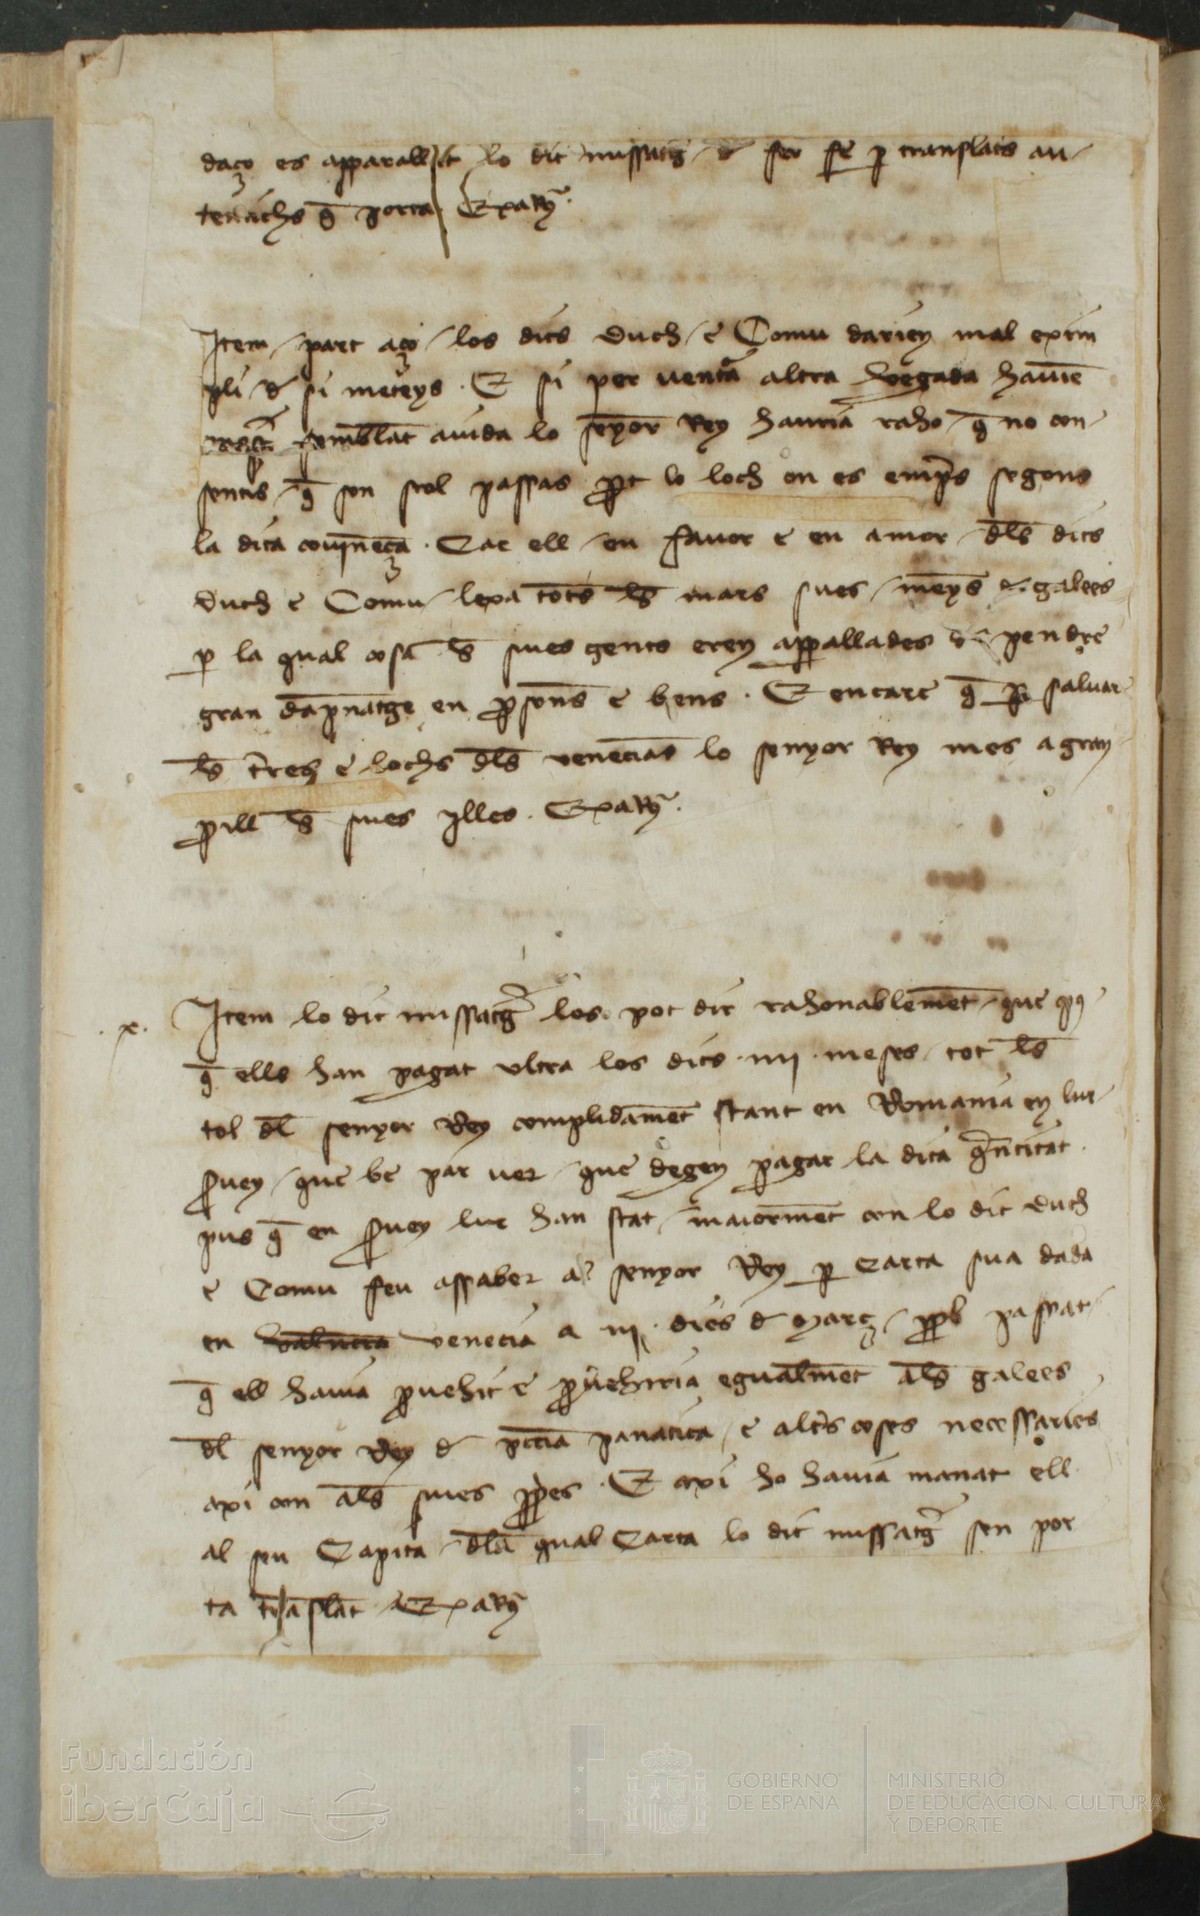 daço es apparallat lo dit missatg̃ de fer fe p translats au-
tentichs q̃ porta. Exaŕ.
Item part aço los dits Duch e Comu darien mal exim
pli de si meteys. E si per ventã altra vegada hauiẽ
semblãt aiuda lo senyor Rey hauria raho q̃ no con-
sentis q̃ son stol passas prt lo loch on es empr̃s segons
la dita couinẽça. Car ell en fauor e en amor d̃ls dits
Duch e Comu lexa totes l̃s mars sues meyns de galees
p la qual cosa l̃s sues gents eren appallades de pendre
gran dãpnatge en p̱sones e bens. E encare q̃ p saluar
l̃s t̃res e lochs d̃ls venecians lo senyor Rey mes a gran
p̱ill l̃s sues ylles. Exaŕ.
.x. Item lo dit missatg̃ los pot dir rahonablemẽt que pus
q̃ ells han pagat ultra los dits .IIII. meses tot l̃s
tol d̃l senyor Rey complidamẽt stant en Romania en lur
s̃uey que be par ver que degen pagar la dita q̃ntitat.
pus q̃ en s̃uey lur han stat maiormẽt con lo dit Duch
e Comu feu assaber al senyor Rey p carta sua dada
en valencia venecia a III. dies de Març prop passat
q̃ ell hauia p̱uehit e p̱uehiria egualmẽt a l̃s galees
d̃l senyor Rey de panatica e altr̃s coses necessaries
axi com a l̃s sues pp̱es. E axi ho hauia manat ell
al seu Capita d̃la qual Carta lo dit missatg̃ sen por
ta translat Exaŕ
Fundación
iberCaja
GOBIERNO
DE ESPAÑA
MINISTERIO
DE EDUCACIÓN, CULTURA
Y DEPORTE